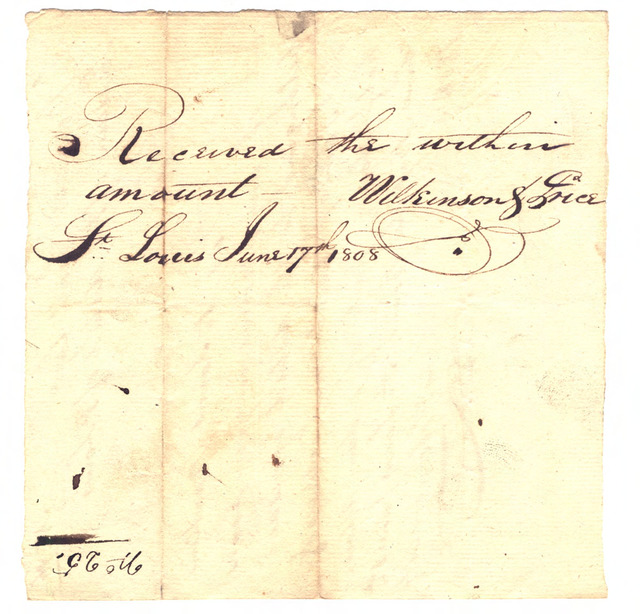 Received the within
amount — Wilkinson & Price
St. Louis June 17th 1808
No 25.